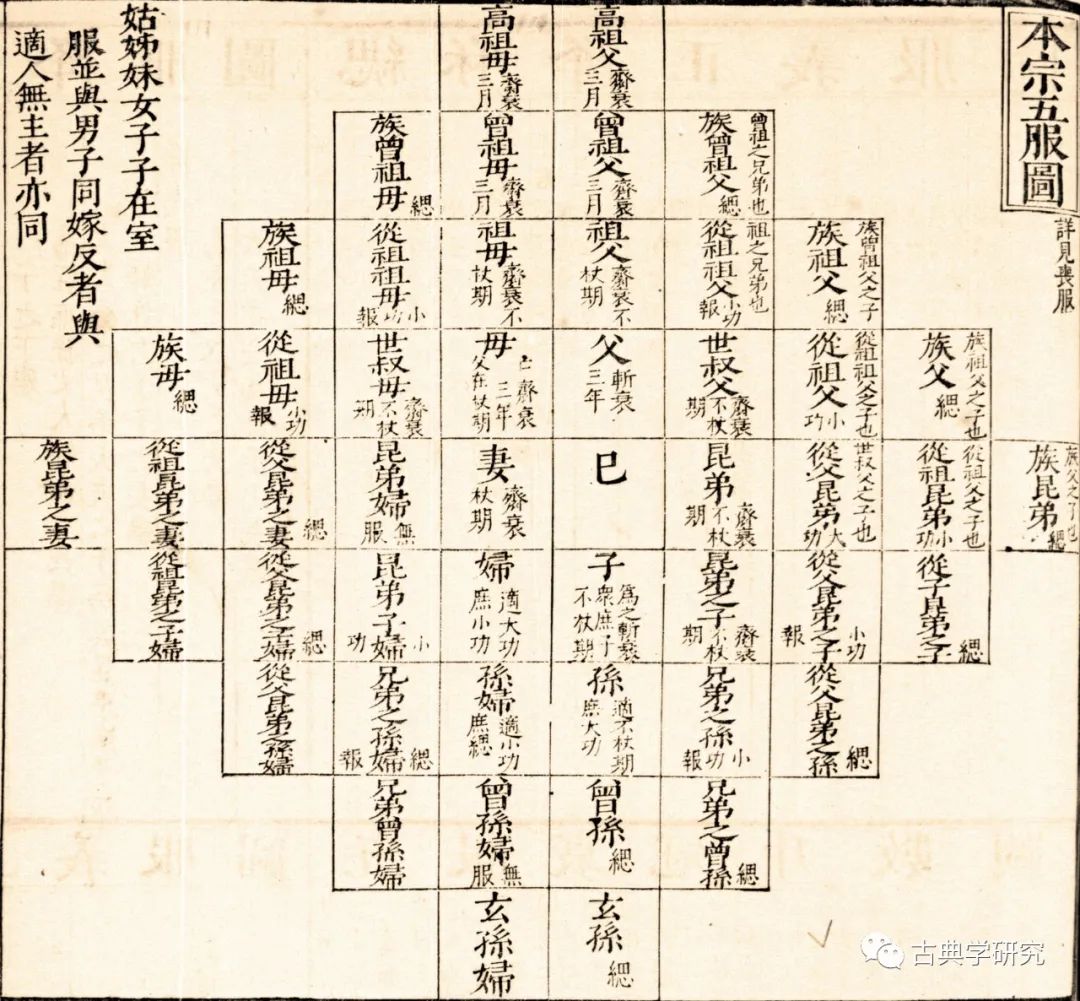 本宗五服圖
詳見喪服
高祖父 齋衰三月
高祖母 齋衰三月
曾祖之兄弟也
族曾祖父 緦
曾祖父 齋衰三月
曾祖母 齋衰三月
族曾祖母 緦
族曾祖父之子
族祖父 緦
祖之兄弟也
從祖祖父 小功報
祖父 齋衰不杖期
祖母 齋衰不杖期
從祖祖母 小功報
族祖母 緦
族祖父之子也
族父 緦
從祖祖父之子也
從祖父 小功
世叔父 齋衰不杖期
父 斬衰三年
母 齋衰三年 父在杖期
世叔母 齋衰不杖期
從祖母 小功報
族母 緦
族父之子也
族昆弟 緦
從祖父之子也
從祖昆弟 小功
世叔父之子也
從父昆弟 大功
昆弟 齋衰不杖期
巳
妻 齋衰杖期
昆弟婦 無服
從父昆弟之妻 緦
從祖昆弟之妻
族昆弟之妻
從子昆弟之子 緦
從父昆弟之子 小功報
昆弟之子 齋衰不杖期
子 為之斬衰 眾庶子不杖期
婦 適大功 庶小功
昆弟子婦 小功
從父昆弟之子婦 緦
從祖昆弟之子婦
從父昆弟之孫 緦
兄弟之孫 小功報
孫 適不杖期 庶大功
孫婦 適小功 庶緦
兄弟之孫婦 緦報
從父昆弟之孫婦
兄弟之曾孫 緦
曾孫 緦
曾孫婦 無服
兄弟曾孫婦
玄孫 緦
玄孫婦
姑姊妹女子子在室
服並與男子同嫁反者與
適人無主者亦同
古典学研究